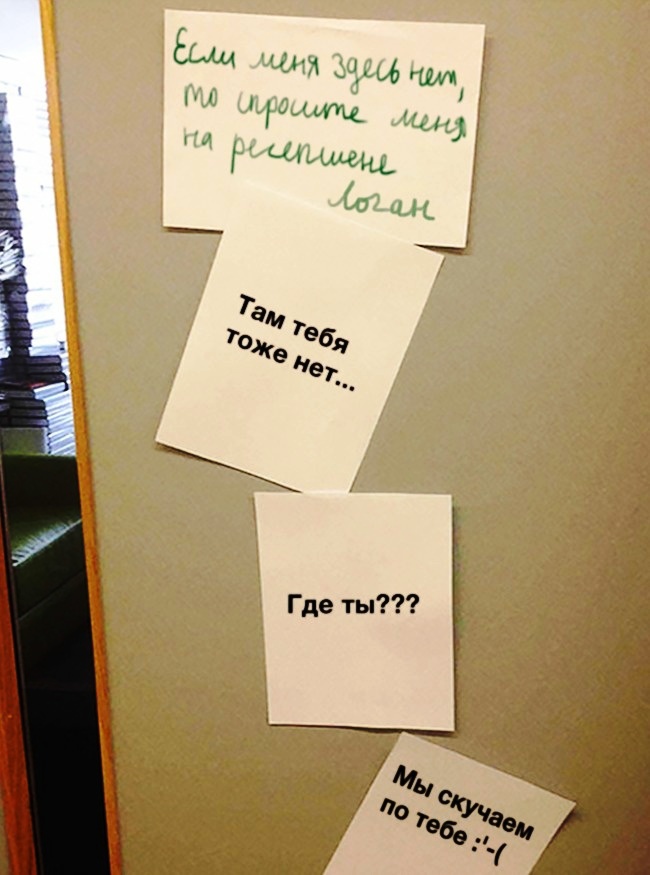 Если меня здесь нет,
то спросите меня
на ресепшене
Логан
Там тебя
тоже нет...
Где ты???
Мы скучаем
по тебе :'-(